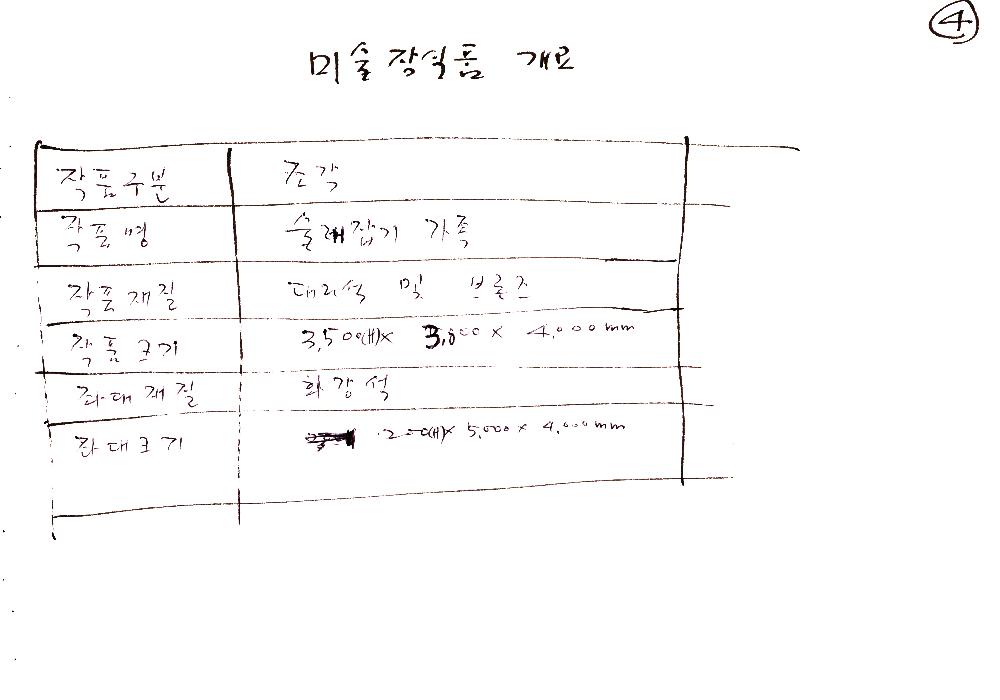 ④
미술장식품 개요
작품구분 조각
작품명 술래잡기 가족
작품재질 대리석 및 브론즈
작품크기 3,500(H)x 3,800 x 4,000mm
좌대재질 화강석
좌대크기 200(H)x 5,000 x 4,000mm